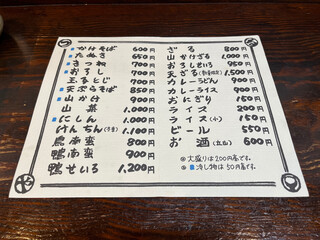 かけそば 600円
たぬき 650円
きつね 700円
おろし 700円
玉子とじ 700円
天ぷらそば 850円
山かけ 900円
山菜 1,000円
にしん 1,000円
けんちん 1,100円
鳥南蛮 800円
鴨南蛮 900円
鴨せいろ 1,200円
ざる 800円
山かけざる 1,000円
おろしせいろ 950円
天ざる 1,500円
カレーうどん 900円
カレーライス 900円
おにぎり 150円
ライス 200円
ライス(小) 150円
ビール 550円
お酒 600円
大盛りは200円増です。
冷し物は50円増です。